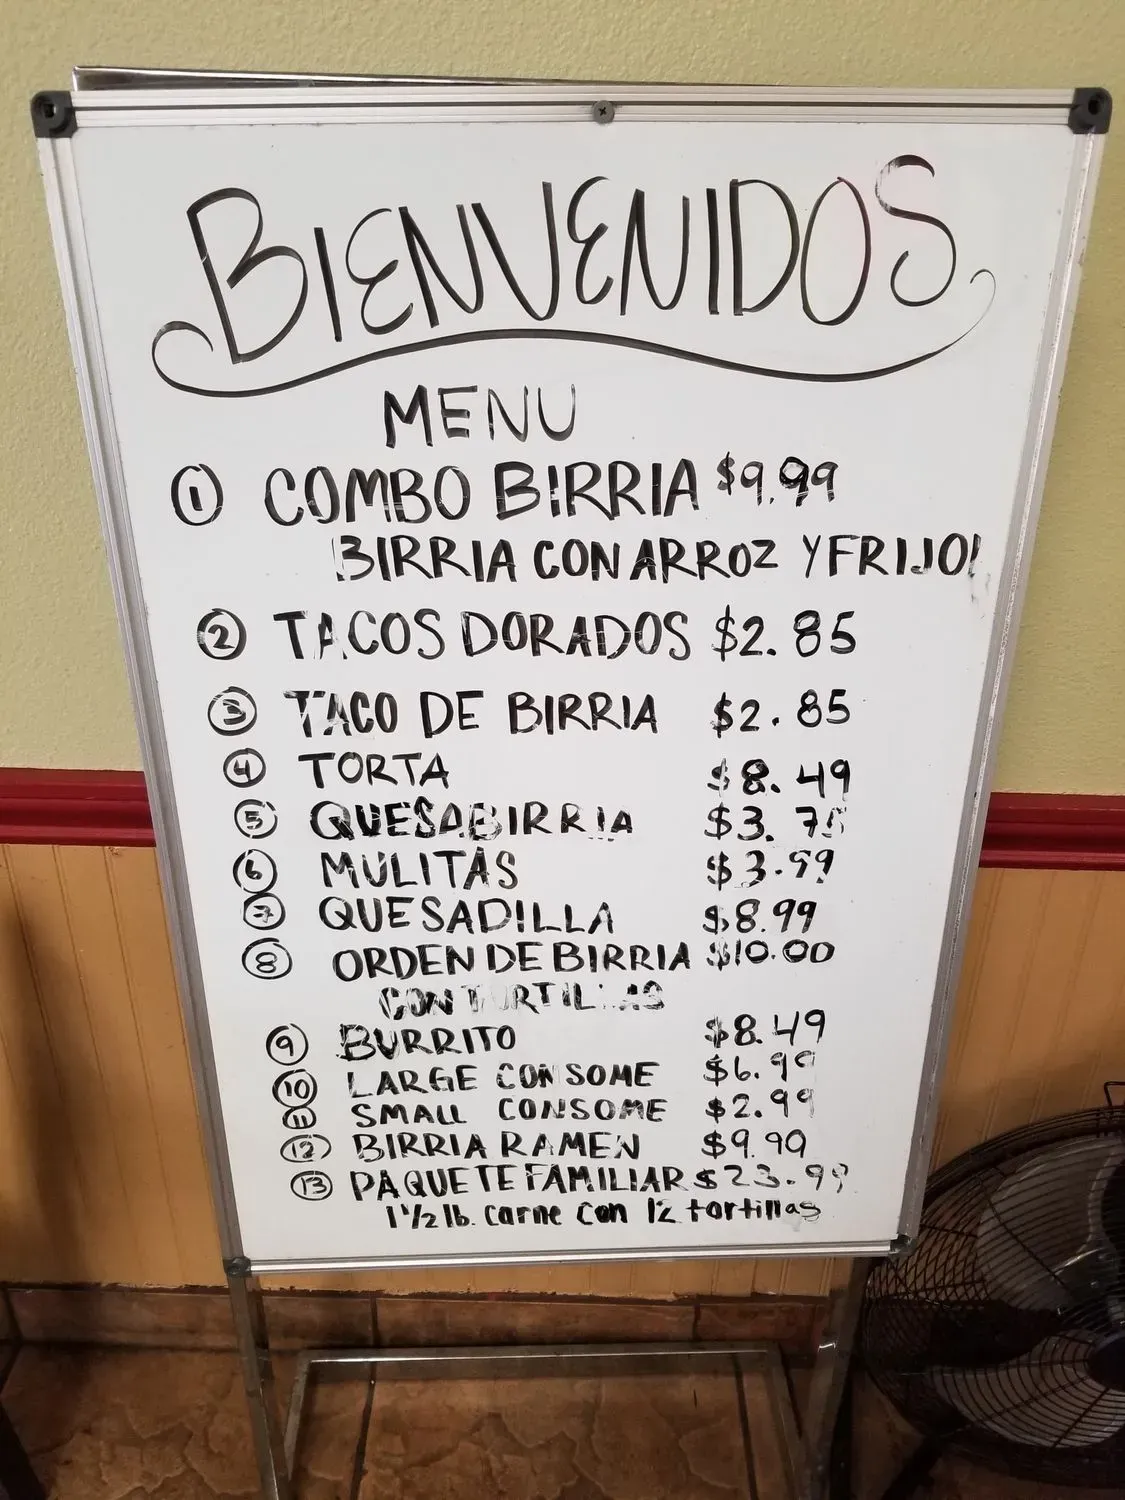 BIENVENIDOS
MENU
1 COMBO BIRRIA $9.99
BIRRIA CON ARROZ Y FRIJOL
2 TACOS DORADOS $2.85
3 TACO DE BIRRIA $2.85
4 TORTA $8.49
5 QUESABIRRIA $3.75
6 MULITAS $3.99
7 QUESADILLA $8.99
8 ORDEN DE BIRRIA $10.00
CON TORTILLAS
9 BURRITO $8.49
10 LARGE CONSOME $6.99
11 SMALL CONSOME $2.99
12 BIRRIA RAMEN $9.90
13 PAQUETE FAMILIAR $23.99
1 1/2 lb. carne con 12 tortillas